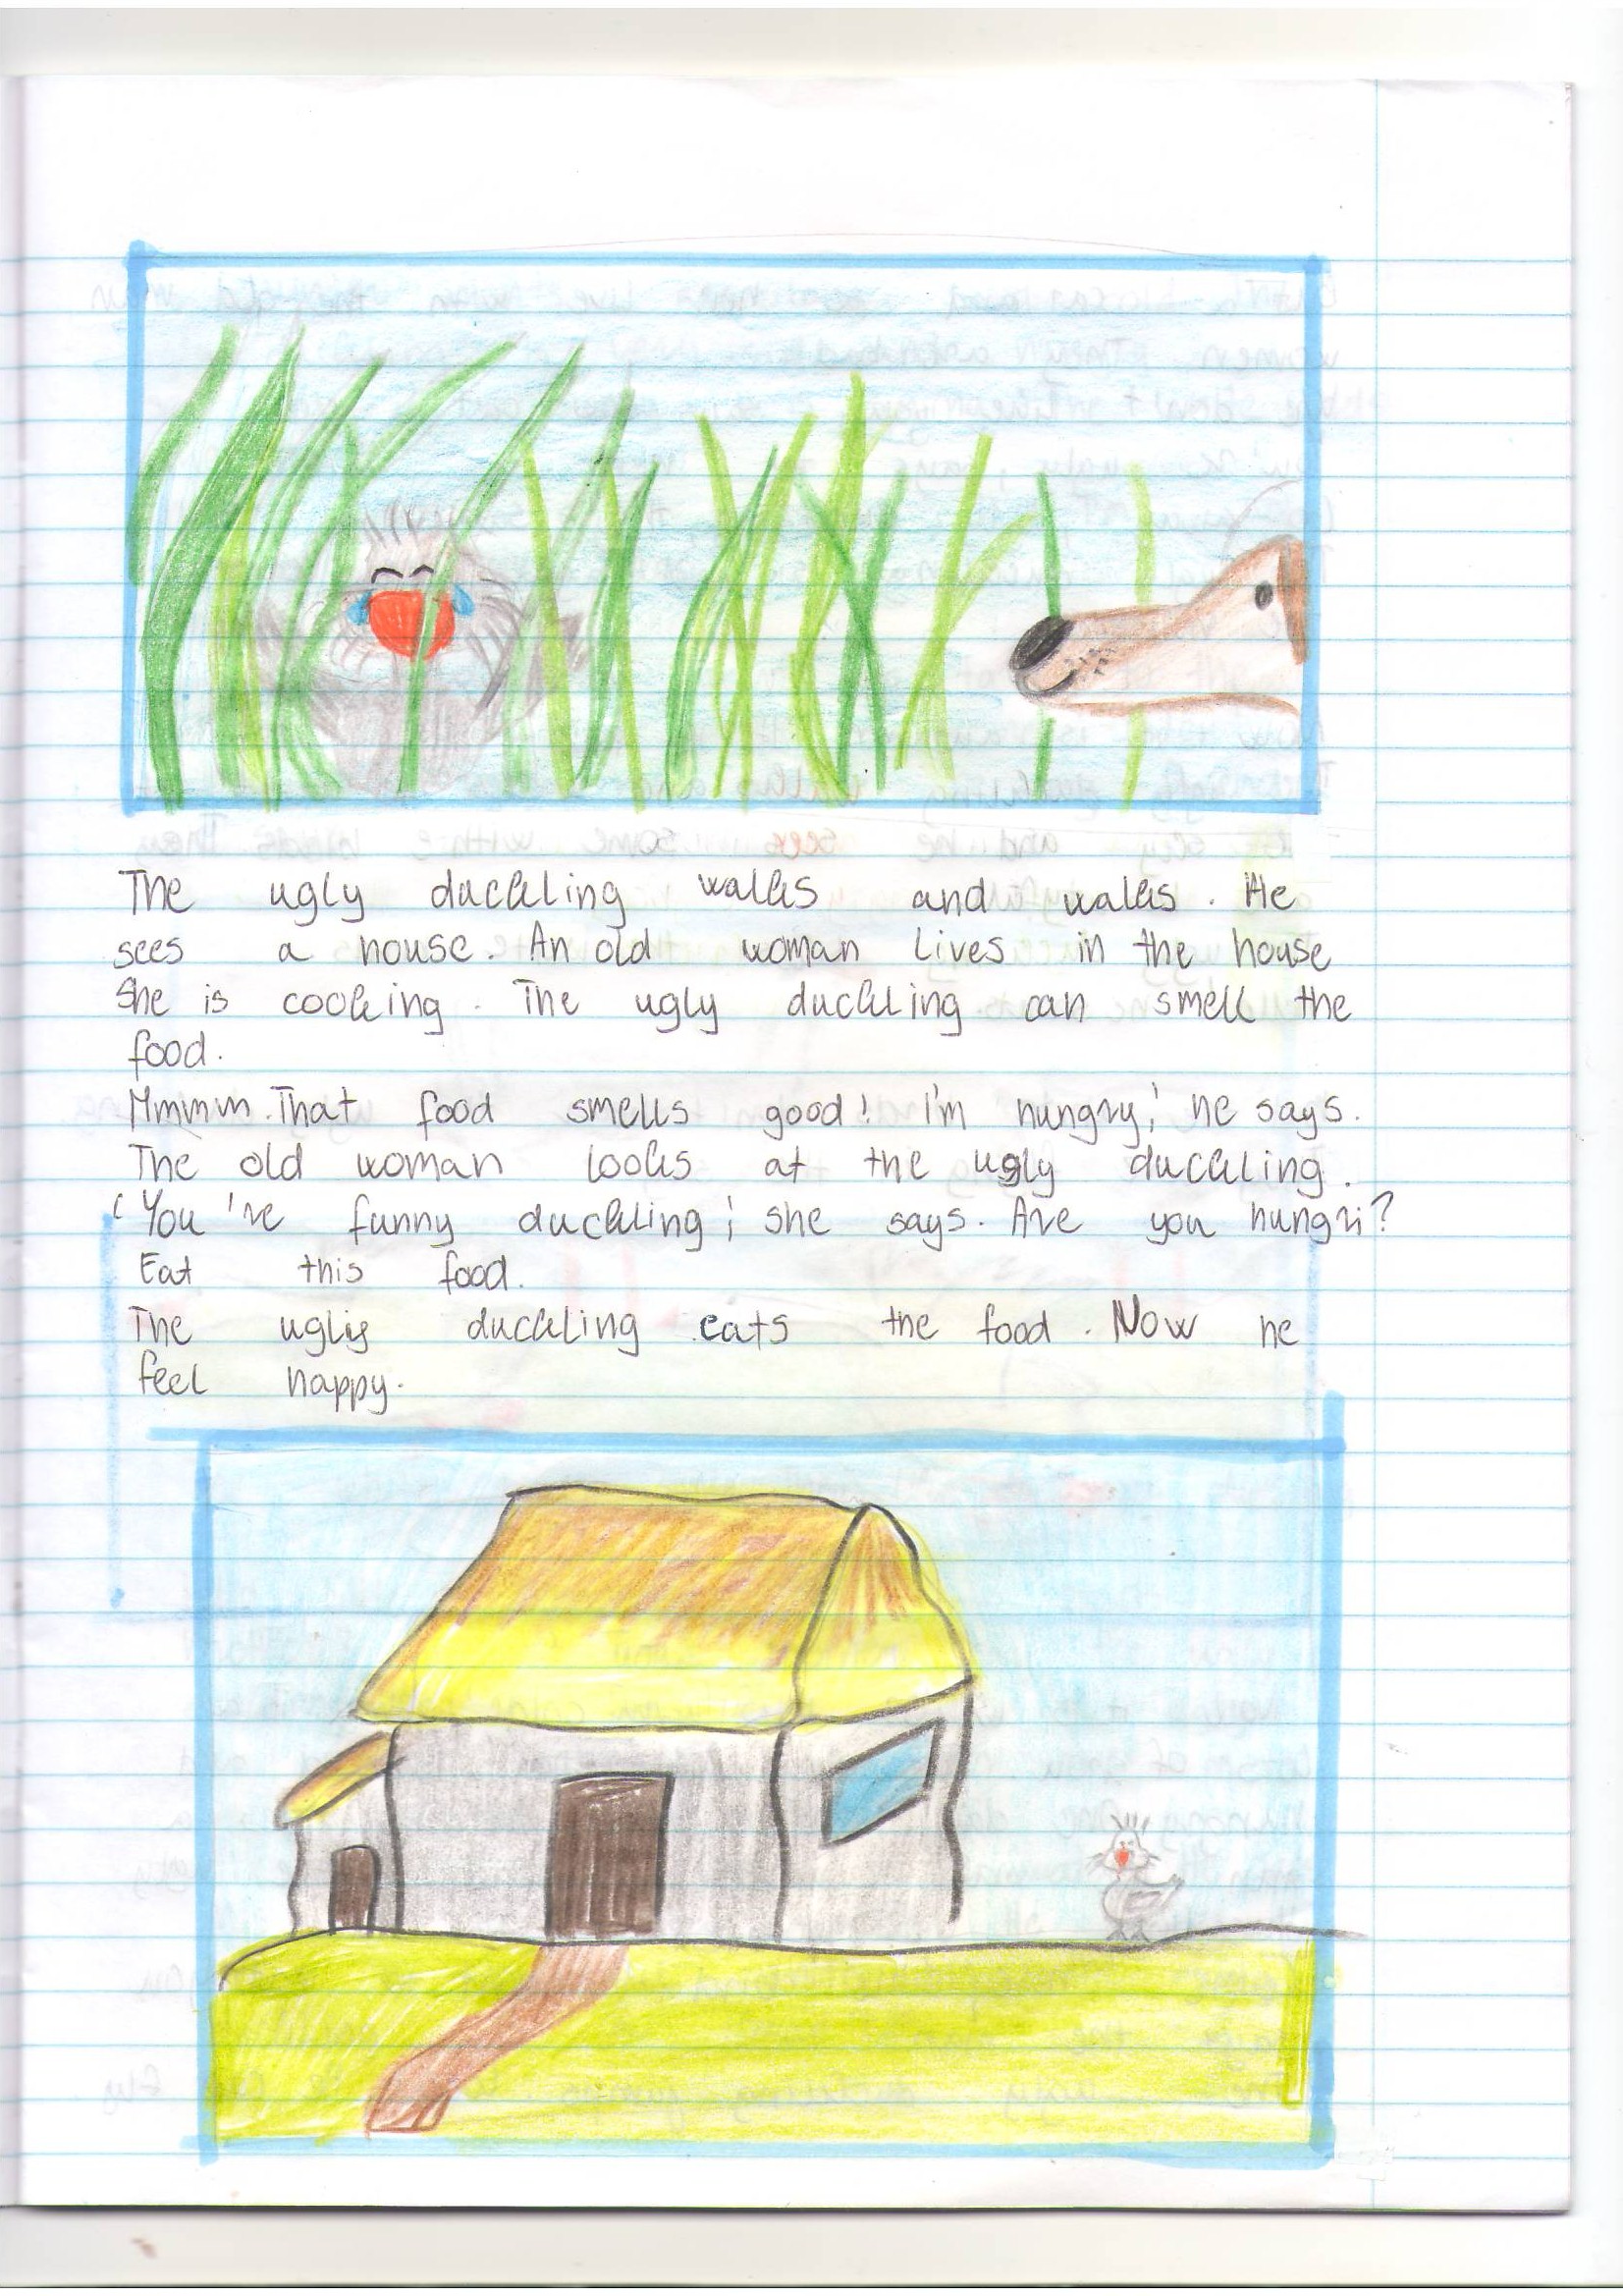 The ugly duckling walks and walks. He
sees a house. An old woman lives in the house
She is cooking. The ugly duckling can smell the
food.
Mmmm. That food smells good! I'm hungry,' he says.
The old woman looks at the ugly duckling.
'You 're funny duckling,' she says. Are you hungri?
Eat this food.
The ugly duckling eats the food. Now he
feel happy.